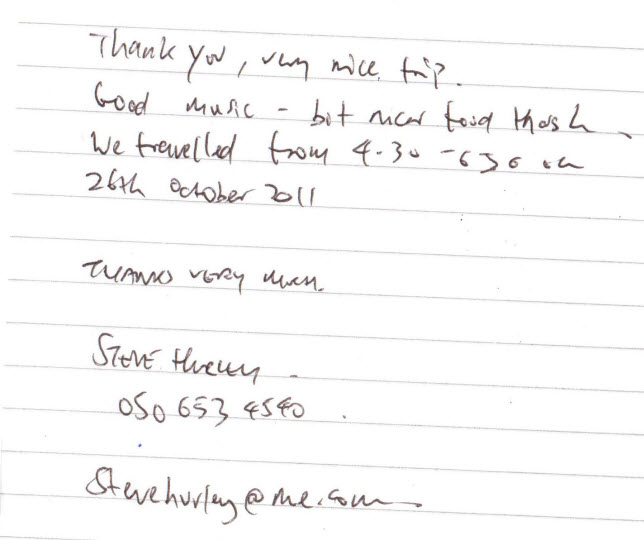 Thank you, very nice trip.
Good music - but nicer food though.
We travelled from 4.30 - 630 on
26th October 2011
THANKS VERY much.
STEVE Hurley
050 653 4540
Stevehurley@me.com